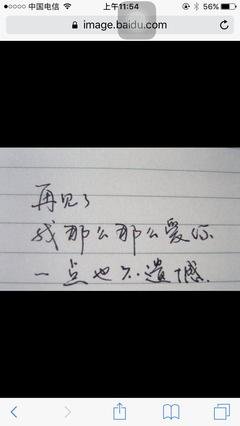 中国电信 上午11:54 56%
image.baidu.com
再见了
我那么那么爱你
一点也不遗憾.